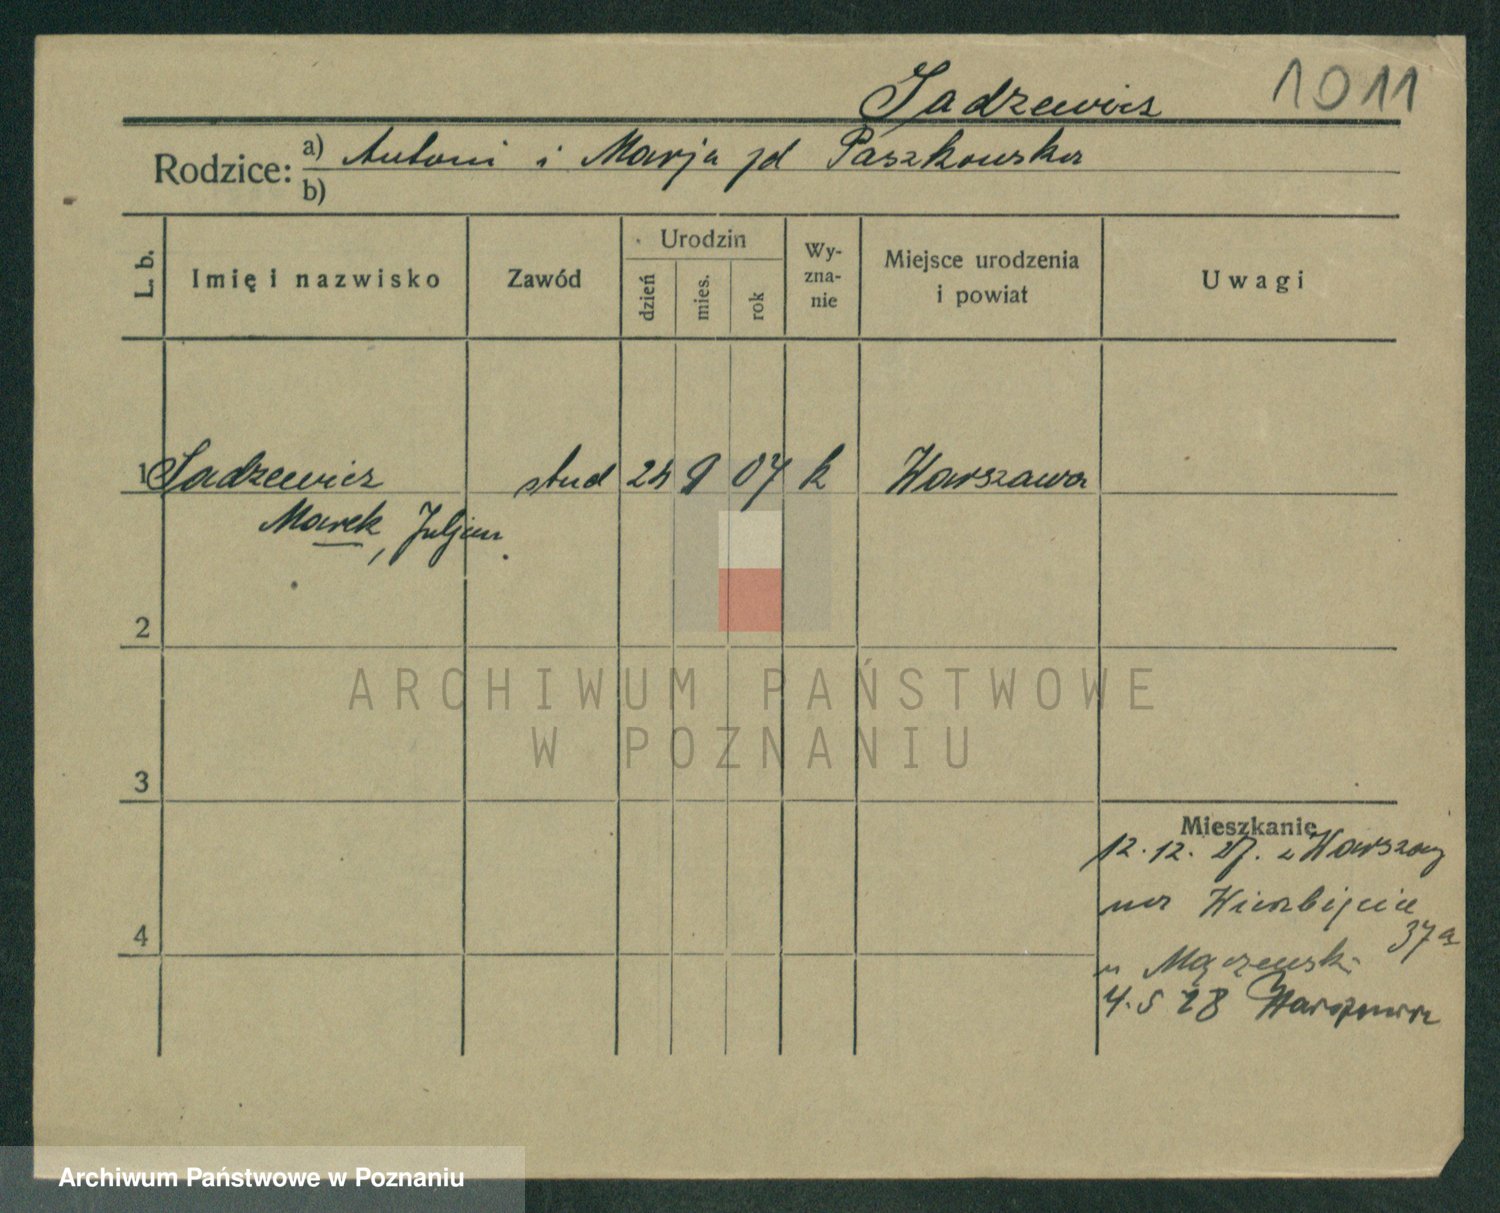 Sadzewicz 1011
Rodzice: a) Antoni i Marja zd Paszkowska
b)
L. b.
Imię i nazwisko
Zawód
Urodzin
dzień
mies.
rok
Wy-
zna-
nie
Miejsce urodzenia
i powiat
Uwagi
1 Sadzewicz stud 24 9 07 k Warszawa
Marek, Juljan
2
ARCHIWUM PAŃSTWOWE
W POZNANIU
3
Mieszkanie
12. 12. 27. z Warszawy
na Wierzbięcie
37a
4
4. 5 28 Warszawa
Archiwum Państwowe w Poznaniu